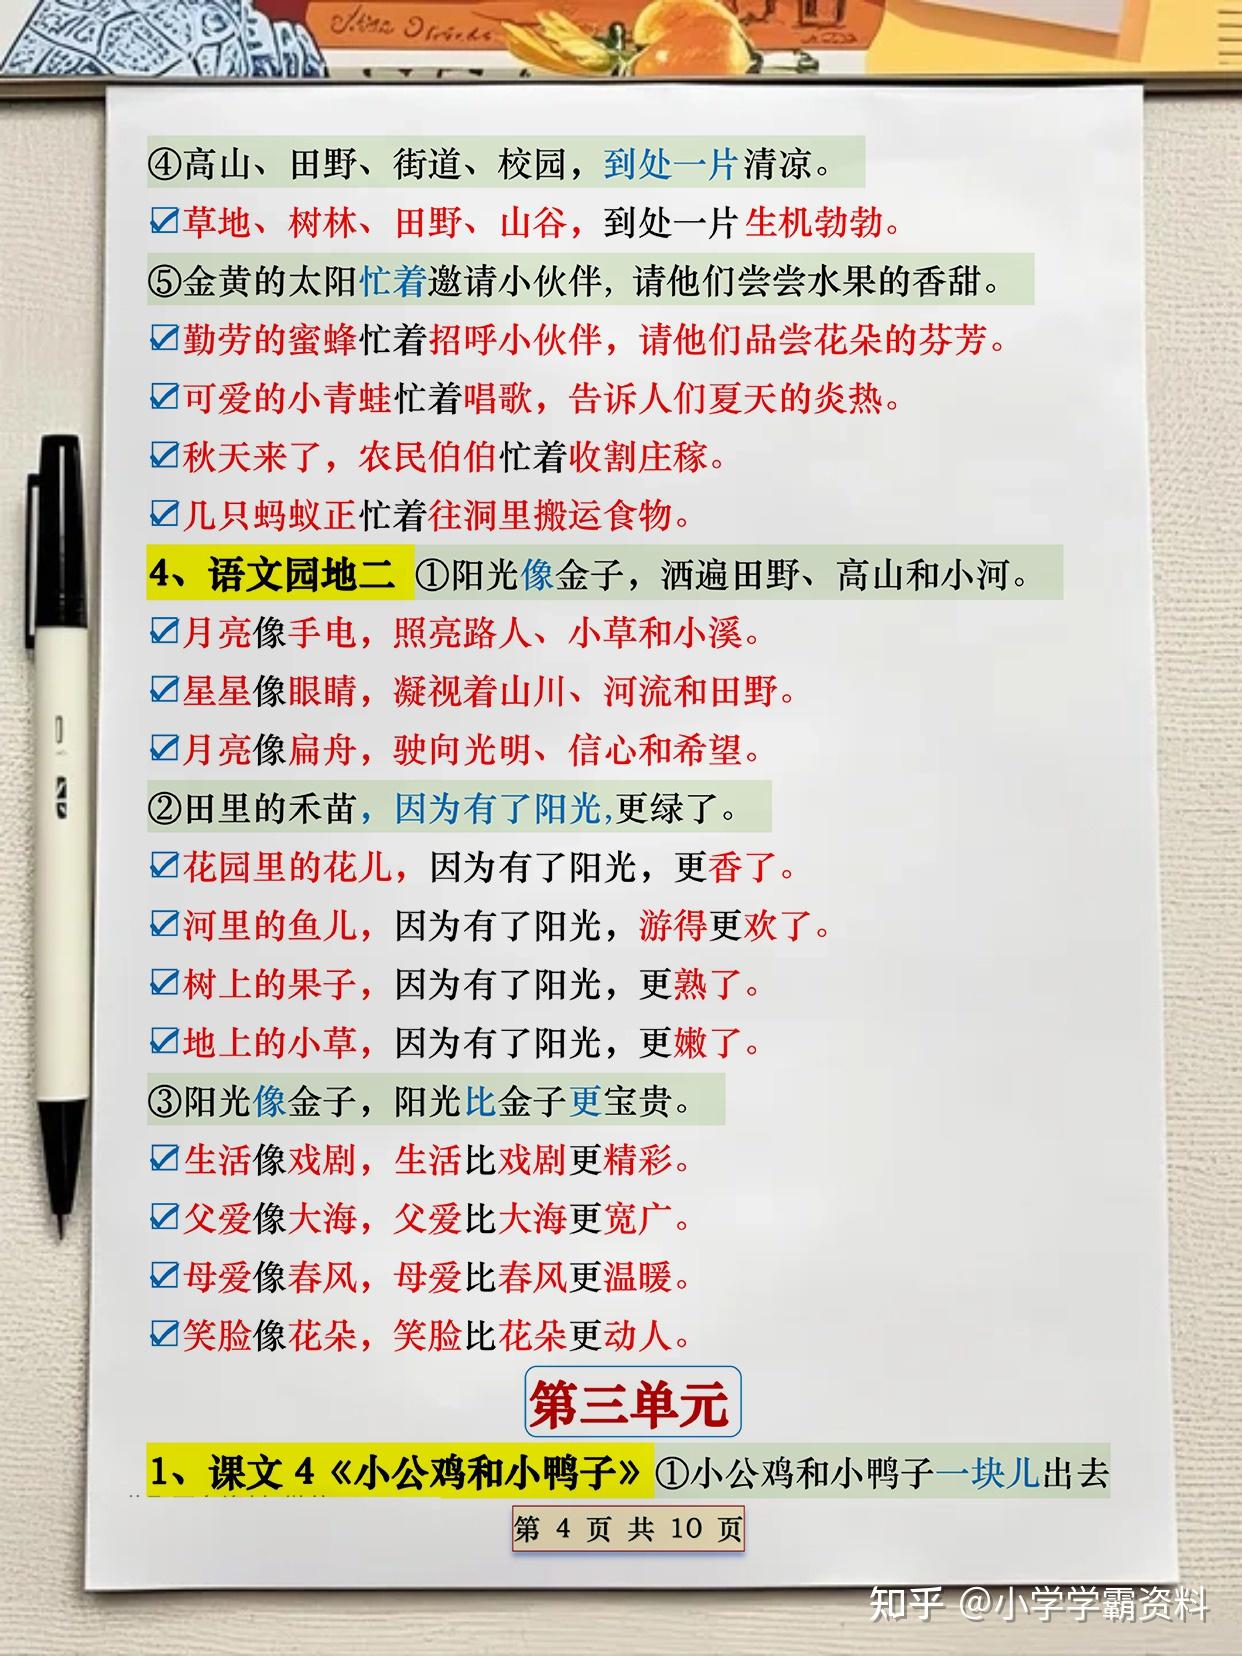 ④高山、田野、街道、校园，到处一片清凉。
☑草地、树林、田野、山谷，到处一片生机勃勃。
⑤金黄的太阳忙着邀请小伙伴，请他们尝尝水果的香甜。
☑勤劳的蜜蜂忙着招呼小伙伴，请他们品尝花朵的芬芳。
☑可爱的小青蛙忙着唱歌，告诉人们夏天的炎热。
☑秋天来了，农民伯伯忙着收割庄稼。
☑几只蚂蚁正忙着往洞里搬运食物。
4、语文园地二 ①阳光像金子，洒遍田野、高山和小河。
☑月亮像手电，照亮路人、小草和小溪。
☑星星像眼睛，凝视着山川、河流和田野。
☑月亮像扁舟，驶向光明、信心和希望。
②田里的禾苗，因为有了阳光,更绿了。
☑花园里的花儿，因为有了阳光，更香了。
☑河里的鱼儿，因为有了阳光，游得更欢了。
☑树上的果子，因为有了阳光，更熟了。
☑地上的小草，因为有了阳光，更嫩了。
③阳光像金子，阳光比金子更宝贵。
☑生活像戏剧，生活比戏剧更精彩。
☑父爱像大海，父爱比大海更宽广。
☑母爱像春风，母爱比春风更温暖。
☑笑脸像花朵，笑脸比花朵更动人。
第三单元
1、课文 4《小公鸡和小鸭子》①小公鸡和小鸭子一块儿出去
第 4 页 共 10 页
知乎 @小学学霸资料